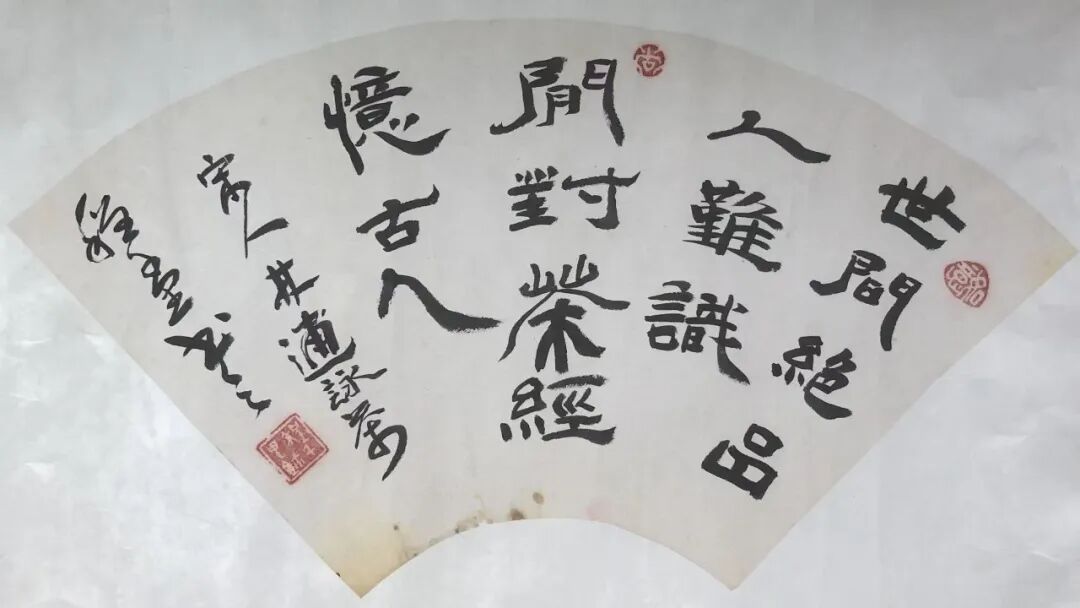 世間絕品
人難識
閒對茶經
憶古人
宋人林逋詠茶